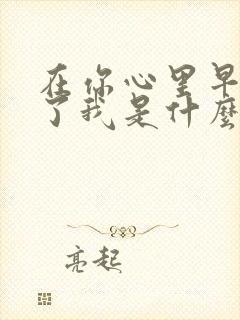 在你心里早
了我是什麼
亮起